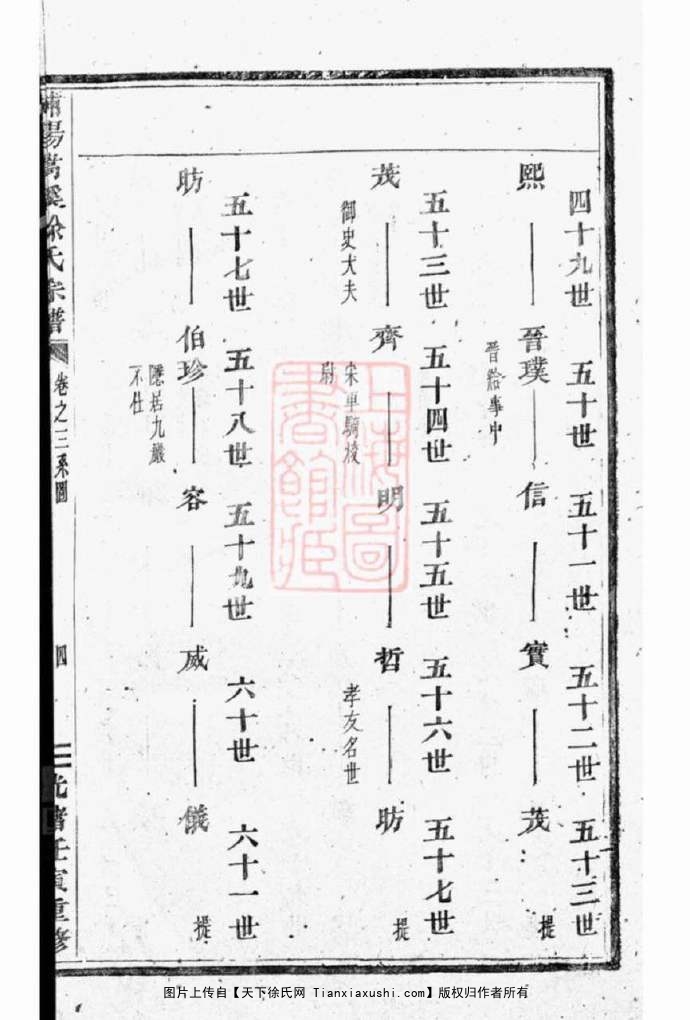 四十九世 五十世 五十一世 五十二世 五十三世
熙 晉璞 信 實 茂 提
晉給事中
五十三世 五十四世 五十五世 五十六世 五十七世
茂 齊 明 哲 昉 提
御史大夫
宋車騎校
尉
孝友名世
五十七世 五十八世 五十九世 六十世 六十一世
昉 伯珍 容 威 儀 提
隱居九巖
不仕
嵩溪徐氏宗譜 卷之三系圖 四 光緒壬寅重修
上海图
书馆藏
图片上传自【天下徐氏网 Tianxiaxushi.com】版权归作者所有